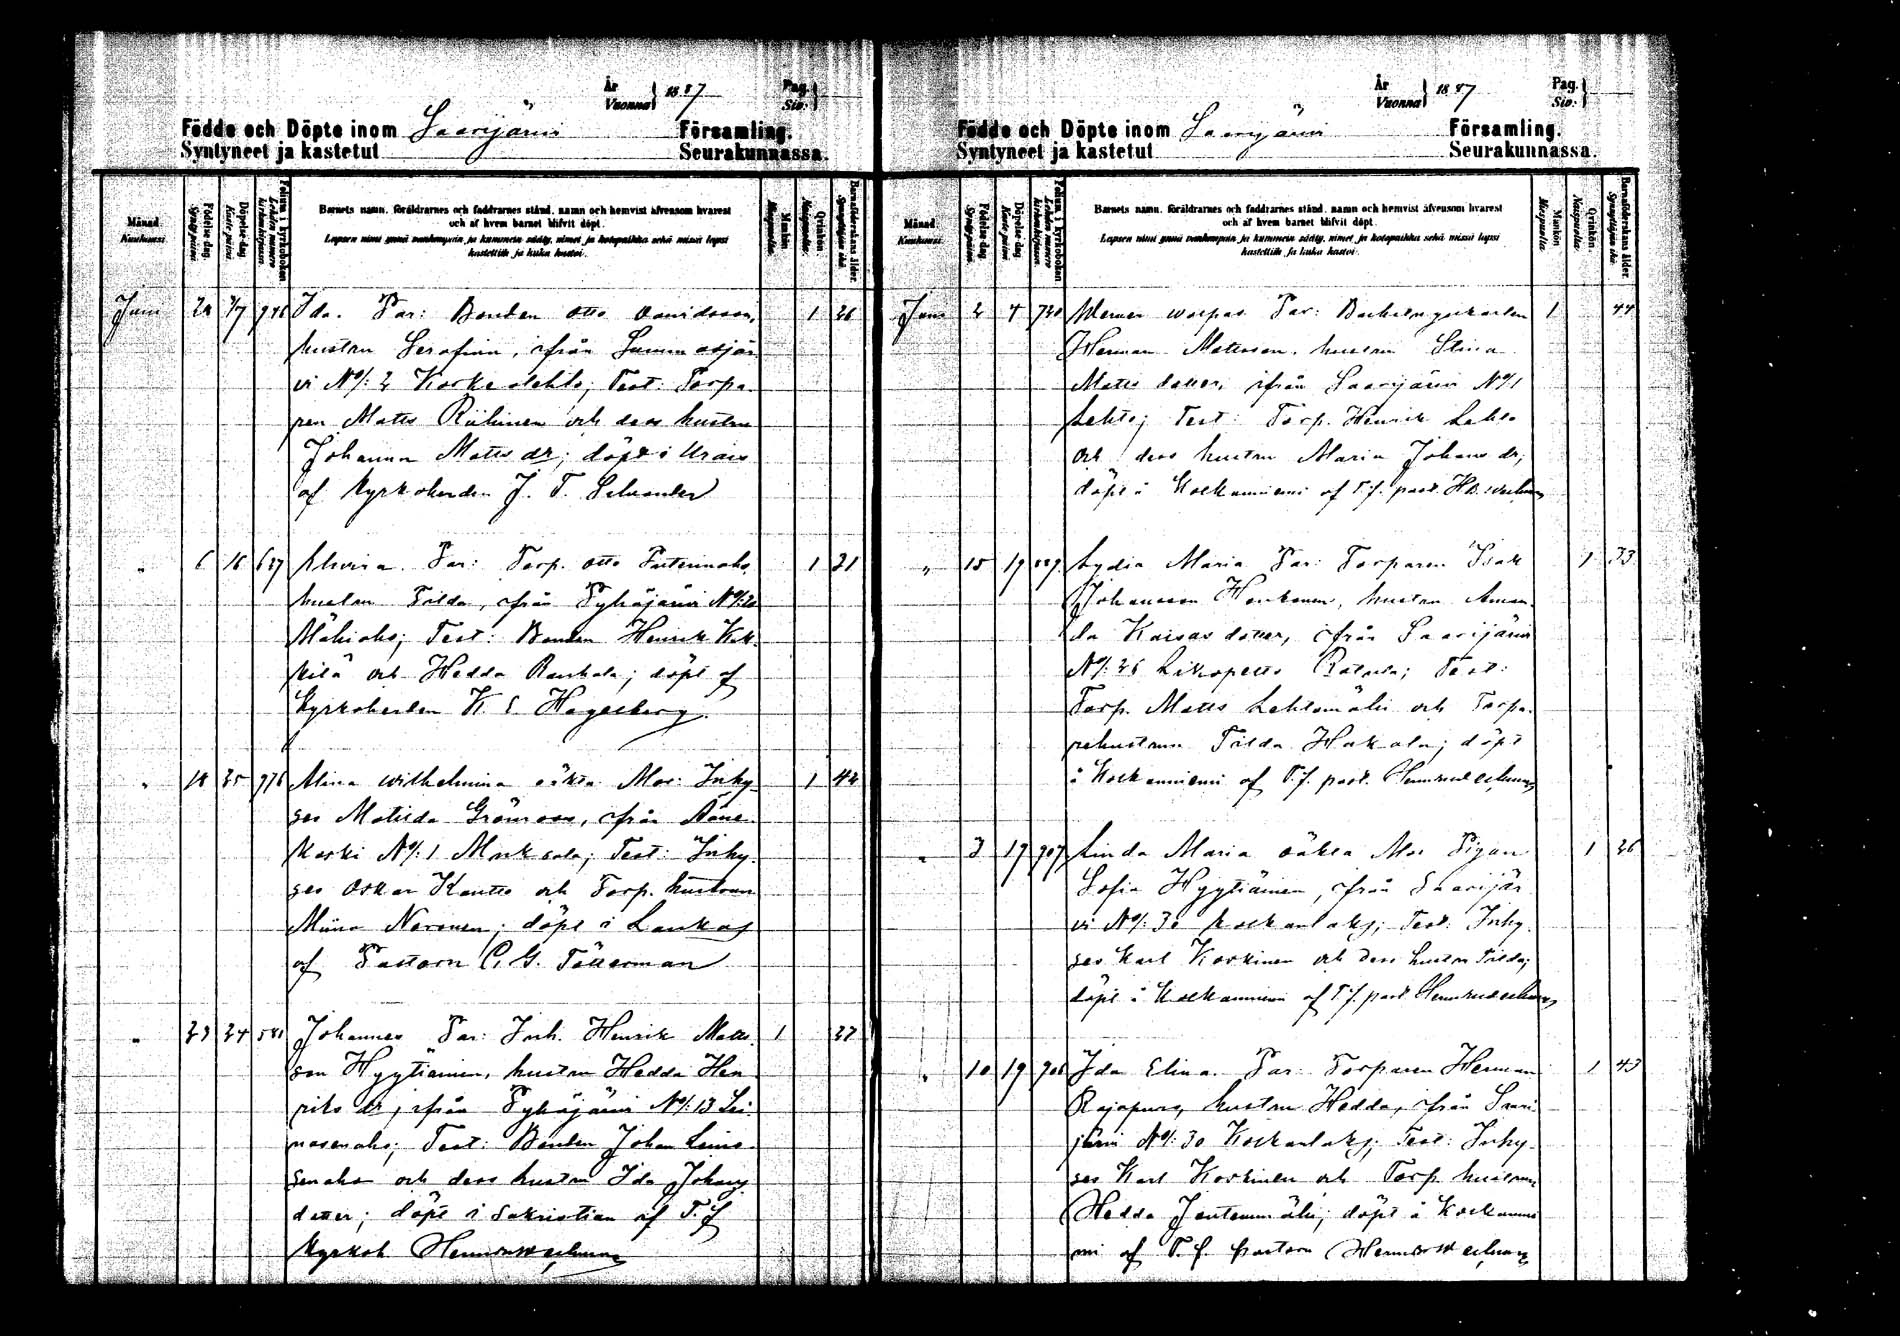 År
Vuonna } 1887
Pag.
Siv: }
Födde och Döpte inom Saarijärvi Församling.
Syntyneet ja kastetut Seurakunnassa.
Månad.
Kuukausi.
Födelse-dag.
Syntymä päivä.
Döpelse-dag.
Kaste päivä.
Folium i kyrkoboken
Lehden numero kirkonkirjassa.
Barnets namn, föräldrarnes och faddrarnes stånd, namn och hemvist äfvensom hvarest
och af hvem barnet blifvit döpt.
Lapsen nimi ynnä vanhempain ja kummein sääty, nimet ja kotopaikka sekä missä lapsi
kastettiin ja kuka kastoi.
Mankön
Miespuolia.
Qvinkön.
Naispuolia.
Barnaföderskans ålder.
Synnyttäjän ikä.
Juni 24 3/7 946 Ida. Far: Bonden Otto Davidsson, 1 26
hustru Serafina, ifrån Summasjär
vi No/: 2 Korkealehto; Test: Torpa
ren Matts Riihinen och dess hustru
Johanna Matts dr; döpt i Urais
af Kyrkoherden J. F. Selvander
" 6 16 637 Elvira. Far: Torp. Otto 1 31
hustru Tilda, ifrån Pyhäjärvi No/: 20
Mähiaho; Test: Bonden Henrik Kek
kilä och Hedda Rauhala; döpt af
Kyrkoherden K. E. Hagelberg.
" 18 25 776 Mina Wilhelmina oäkta Mor: Inhy 1 42
ses Matilda Grönroos, ifrån Ääne
koski No/: 1 Monksala; Test: Inhy
ses Oskar Kautto och Torp. hustrun
Miina Naronen; döpt i Laukas
af Pastorn C. G. Tötterman
" 23 24 581 Johannes Far: Inh. Henrik Matts 1 27
son Hyytiäinen, hustru Hedda Hen
riks dr, ifrån Pyhäjärvi No/: 13 Lei
nosenaho; Test: Bonden Johan Leino
senaho och dess hustru Ida Johans
dotter; döpt i Sakristian af T. f
Kyrkoh
År
Vuonna } 1887
Pag.
Siv: }
Födde och Döpte inom Saarijärvi Församling.
Syntyneet ja kastetut Seurakunnassa.
Månad.
Kuukausi.
Födelse-dag.
Syntymä päivä.
Döpelse-dag.
Kaste päivä.
Folium i kyrkoboken
Lehden numero kirkonkirjassa.
Barnets namn, föräldrarnes och faddrarnes stånd, namn och hemvist äfvensom hvarest
och af hvem barnet blifvit döpt.
Lapsen nimi ynnä vanhempain ja kummein sääty, nimet ja kotopaikka sekä missä lapsi
kastettiin ja kuka kastoi.
Mankön
Miespuolia.
Qvinkön.
Naispuolia.
Barnaföderskans ålder.
Synnyttäjän ikä.
Juni 2 4 720 Werner Far: 1 44
Herman Mattsson, hustru Stina
Matts dotter, ifrån Saarijärvi No/1
Lehto; Test: Torp. Henrik Lehto
och dess hustru Maria Johans dr;
döpt i Kolkanniemi af T. f. past.
" 15 19 Lydia Maria Far: Torparen Isak 1 33
Johansson Honkonen, hustru Aman
da Kaisas dotter, ifrån Saarijärvi
No/: 26 Test:
Torp. Matts Lehtomäki och Torpa
rehustrun Tilda Hakala; döpt
i Kolkanniemi af T. f. past.
" 3 19 907 Linda Maria oäkta Mor Pigan 1 26
Sofia Hyytiäinen, ifrån Saarijär
vi No/: 30 Kolkanlaks; Test: Inhy
ses Karl Korkinen och dess hustru Tilda;
döpt i Kolkanniemi af T. f. past
" 10 19 906 Ida Elina. Far: Torparen Herman 1 43
Rajapuro, hustru Hedda, ifrån Saari
järvi No/: 30 Kolkanlaks; Test: Inhy
ses Karl Korkinen och Torp. hustrun
Hedda Jautenmäki; döpt i Kolkannie
mi af T. f. pastorn